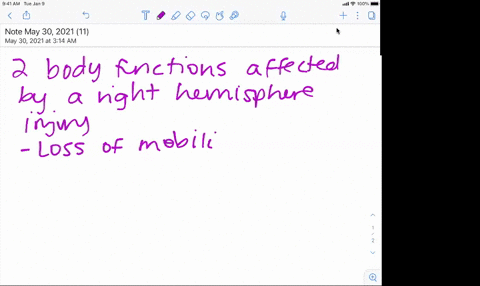 9:41 AM Tue Jan 9
100%
Note May 30, 2021 (11)
May 30, 2021 at 3:14 AM
2 body functions affected
by a right hemisphere
injury
- Loss of mobili
1
2